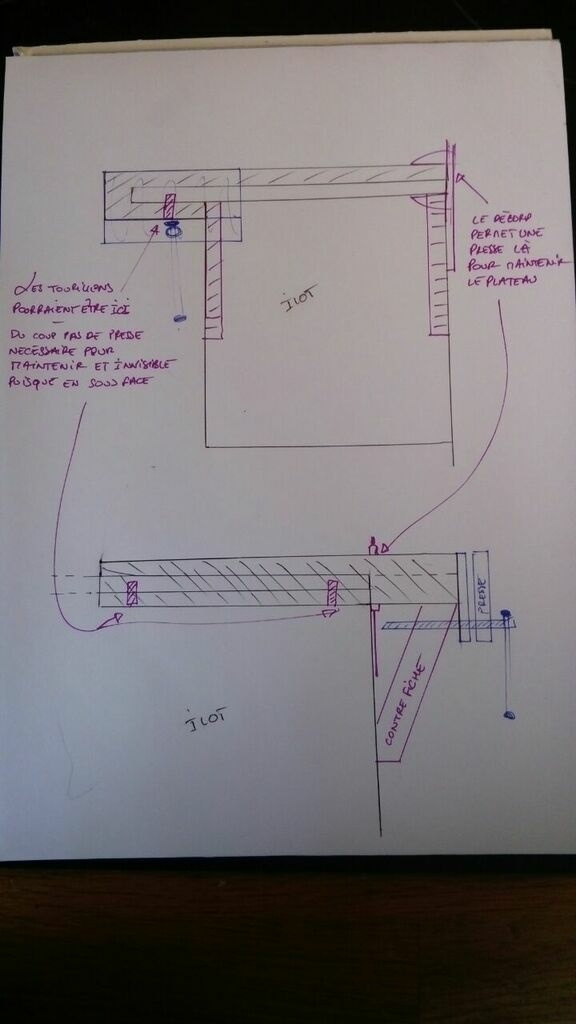 LE DÉBORD
PERMET UNE
PRESSE LÀ
POUR MAINTENIR
LE PLATEAU
LES TOURILLONS
POURRAIENT ÊTRE ICI
DU COUP PAS DE PRESSE
NÉCESSAIRE POUR
MAINTENIR ET INVISIBLE
PUISQUE EN SOUS FACE
ILOT
PRESSE
CONTRE FICHE
ILOT